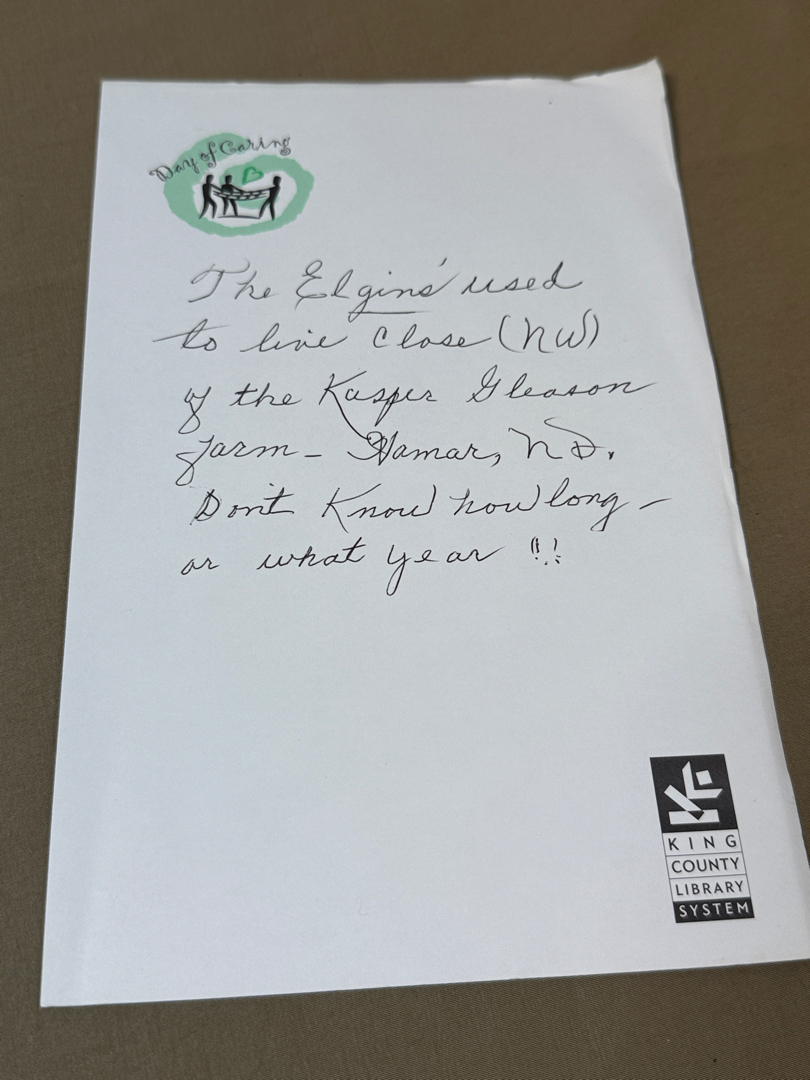 Day of Caring
The Elgins' used
to live close (NW)
of the Kasper Gleason
farm – Hamar, N D.
Don't Know how long –
or what year !!
KING
COUNTY
LIBRARY
SYSTEM